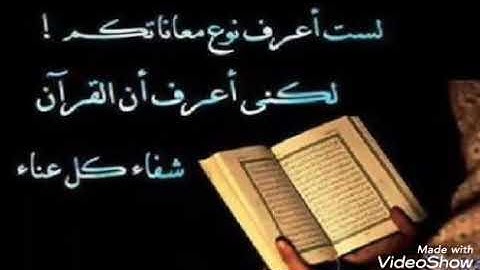 لست أعرف نوع معاناتكم !
لكنى أعرف أن القرآن
شفاء كل عناء
Made with
VideoShow